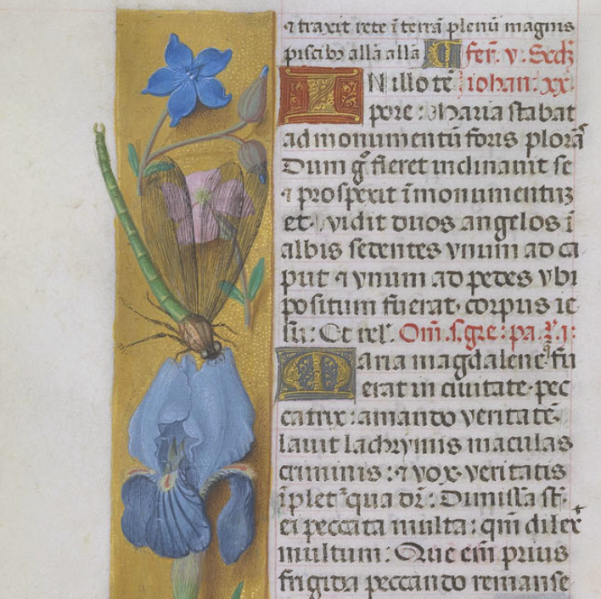 ⁊ traxit rete ī terrā plenū magnis
piscibꝫ allā allā Fer̄. v. Scd̄ꝫ
IN illo tē iohan. xx.
pore: Maria stabat
ad monumentū foris plorā
Dum gͦ fleret inclinauit se
⁊ prospexit ī monumentuꝫ
et vidit duos angelos ī
albis sedentes vnum ad ca
put ⁊ vnum ad pedes vbi
positum fuerat corpus ie
su: Et rel̄. Om̄. s. gre. pa.
Maria magdalene q̄ fu
erat in ciuitate pec
catrix: amando veritatē
lauit lachrymis maculas
criminis: ⁊ vox veritatis
īpletᷣ qua dr̄: Dimissa st̄
ei peccata multa: qm̄ dilex̄
multum: Que em̄ prius
frigida peccando remanse